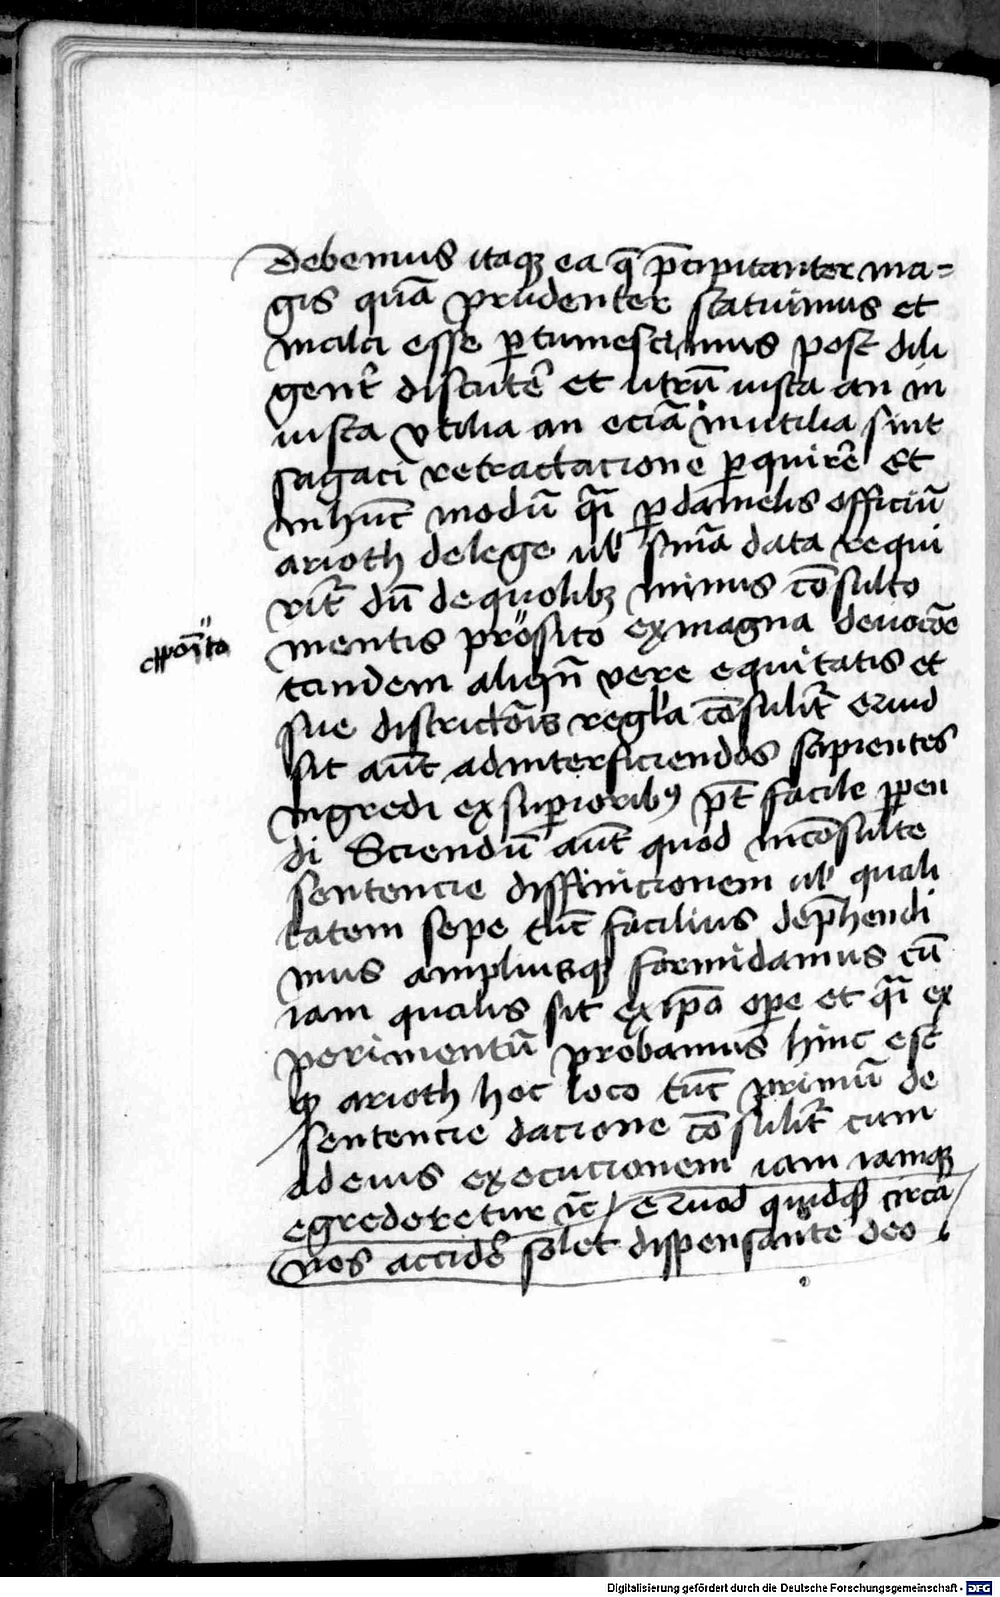 Debemus itaqꝫ ea q̄ p̄cipitanter ma=
gis quā prudenter statuimus et
mala esse ꝑtumescimus post dili
gent᷑ discutē et utrū iusta an in
iusta vtilia an eciā inutilia sint
sagaci retractacione ꝑquirē Et
in hūc modū q̄i ꝑ danielis officiū
arioth de lege ul̕ sn̄ia data requi
rit᷑ dū de quolibꝫ minus cōsulto
mentis prösito ex magna deuocōe
"ꝓpoīto
tandem aliqn̄ vere equitatis et
sue districtōis regl̕a cōsulit᷑ Quid
sit aūt ad interficiendos sapientes
ingredi ex superioribꝰ pt̄ facile ꝑpen
di Sciendū aūt quod incōsulte
sentencie diffinicionem ul̕ quali
tatem sepe tūc facilius dep̄hendi
mus ampliusqꝫ formidamus cū
iam qualis sit ex ip̄o oꝑe et q̄i ex
perimentū probamus hinc est
ꝙ arioth hoc loco tūc primū de
sentencie dacione cōsulit᷑ cum
ad eius execucionem iam iamqꝫ
egrederetur ⁊c̄ / Quod quidqͥd circa
nos accidē solet dispensante deo